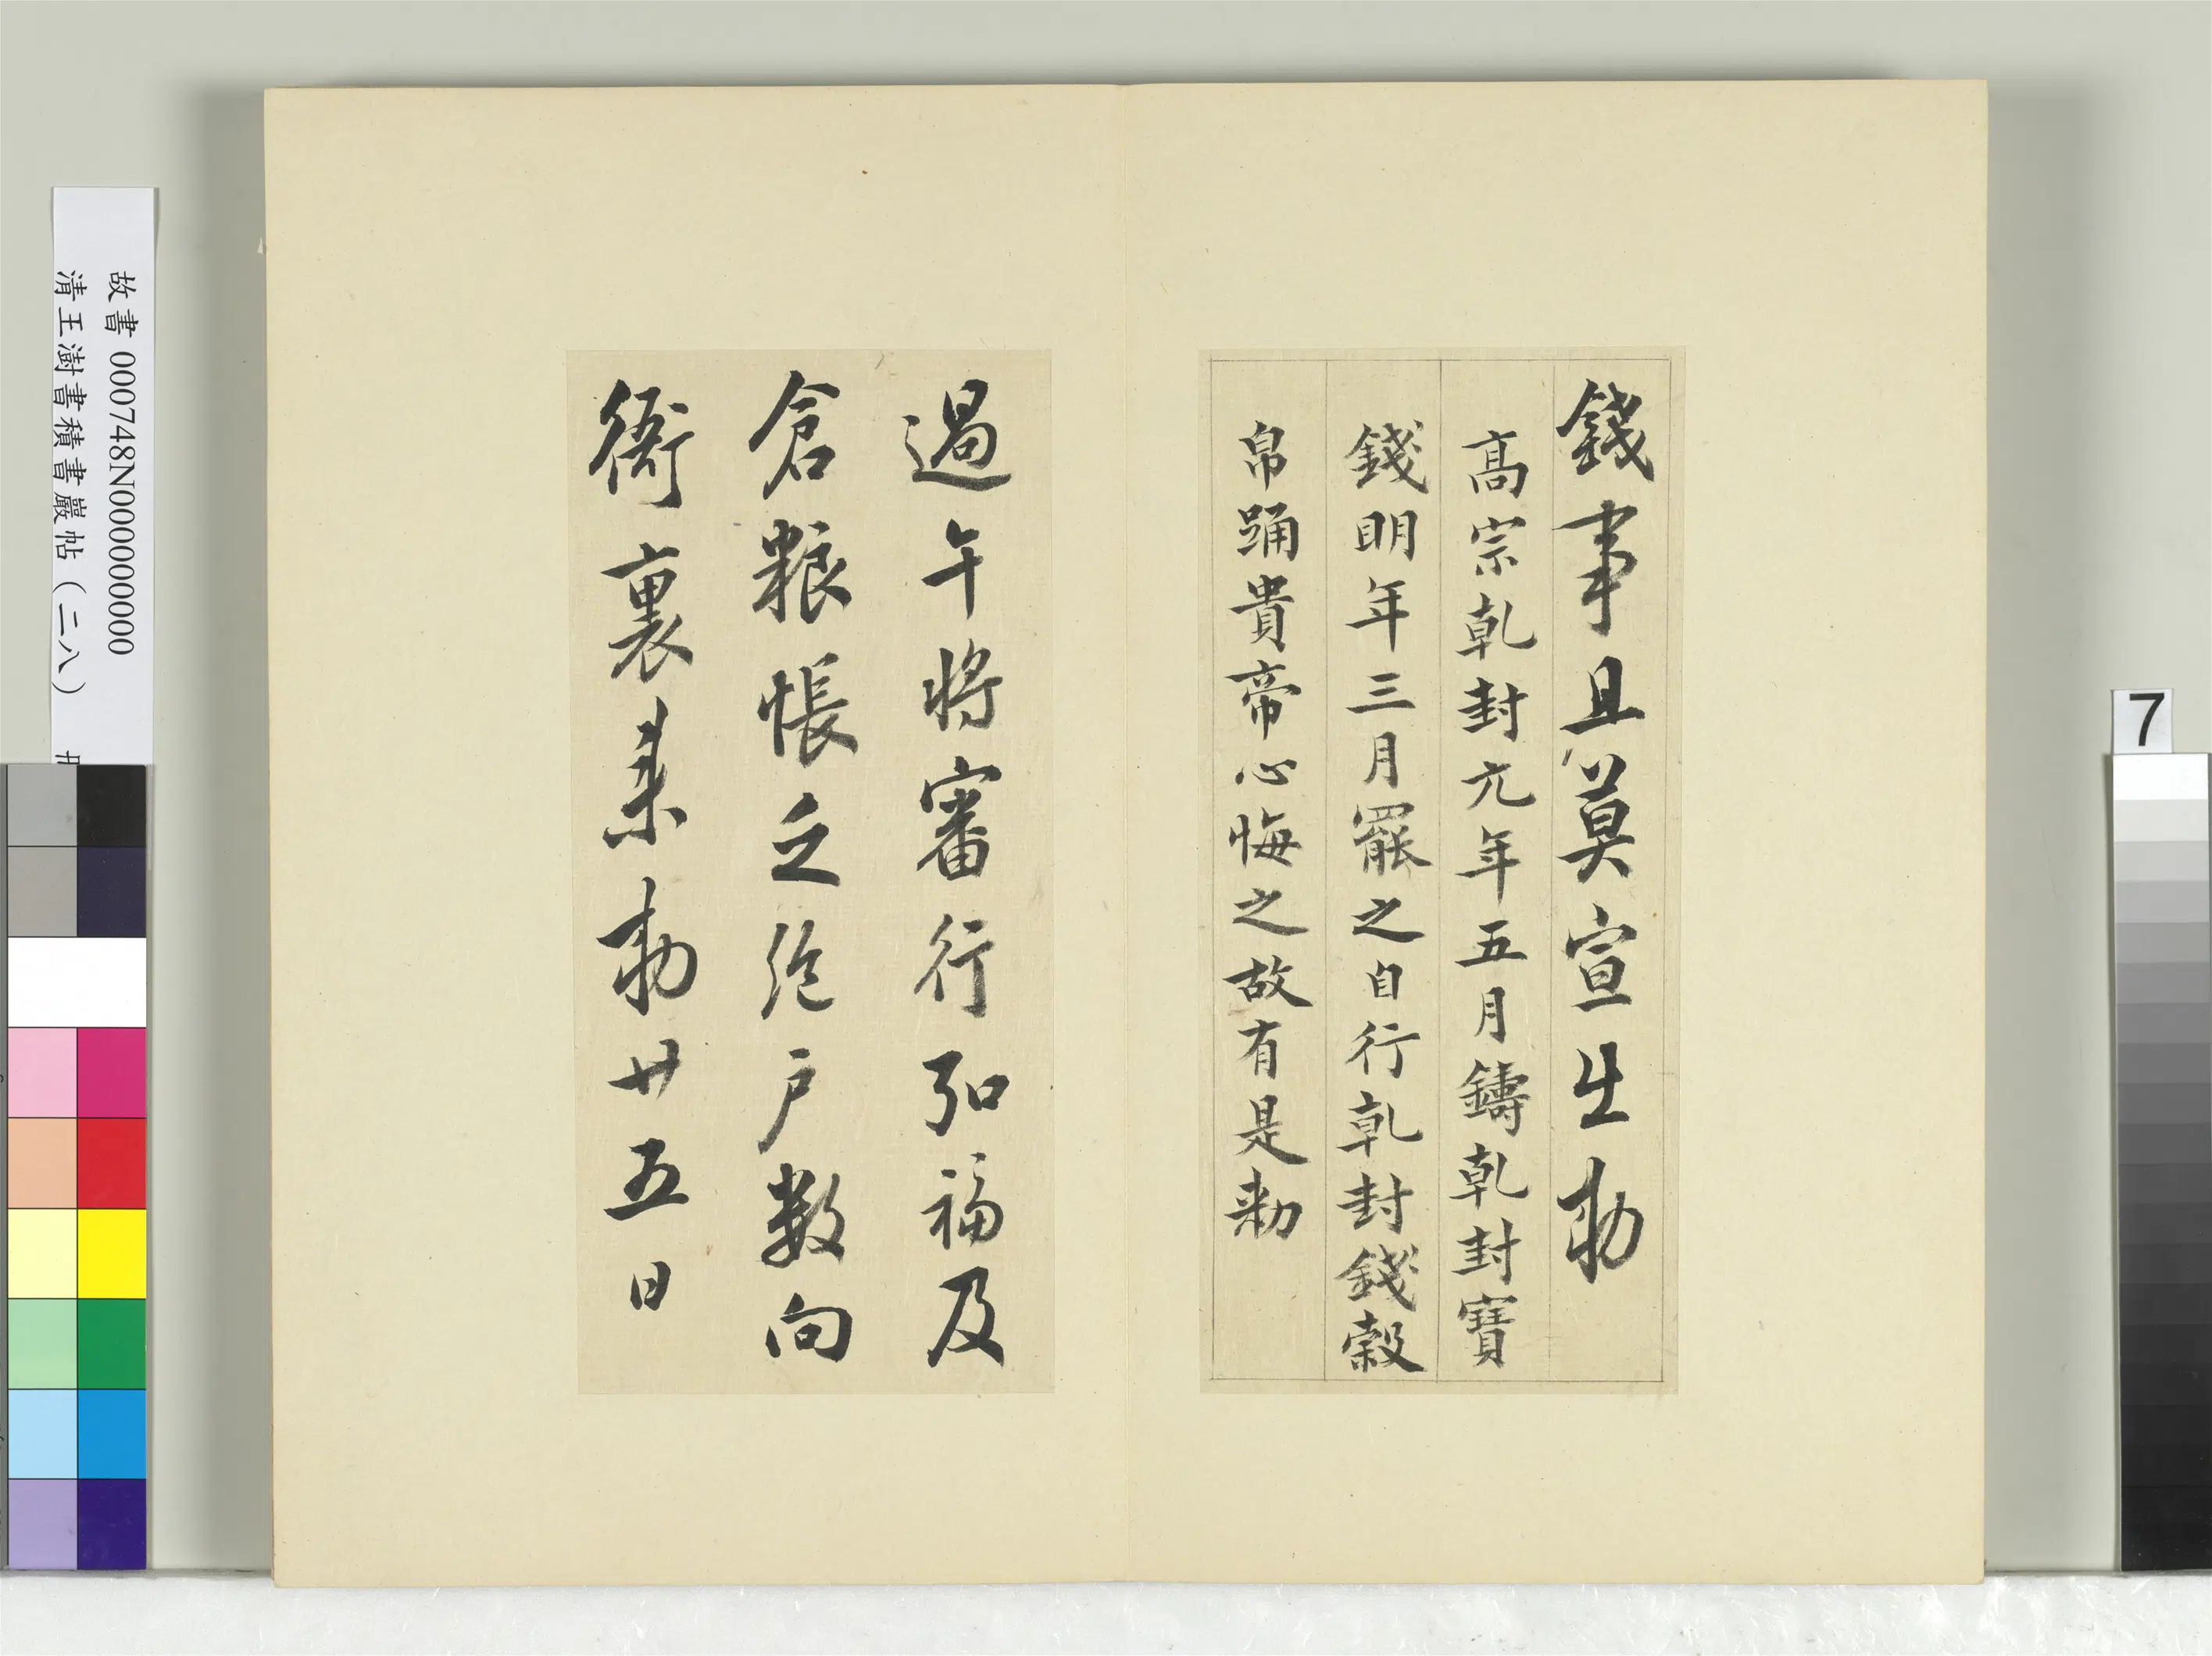 錢事且莫宣出勑
高宗乾封元年五月鑄乾封寶
錢明年三月罷之自行乾封錢穀
帛踊貴帝心悔之故有是勑
過午將審行弘福及
倉粮帳之絶户數向
衙裏來勑廿五日
故書 000748N000000000
清王澍書積書巖帖(二八) 冊
7